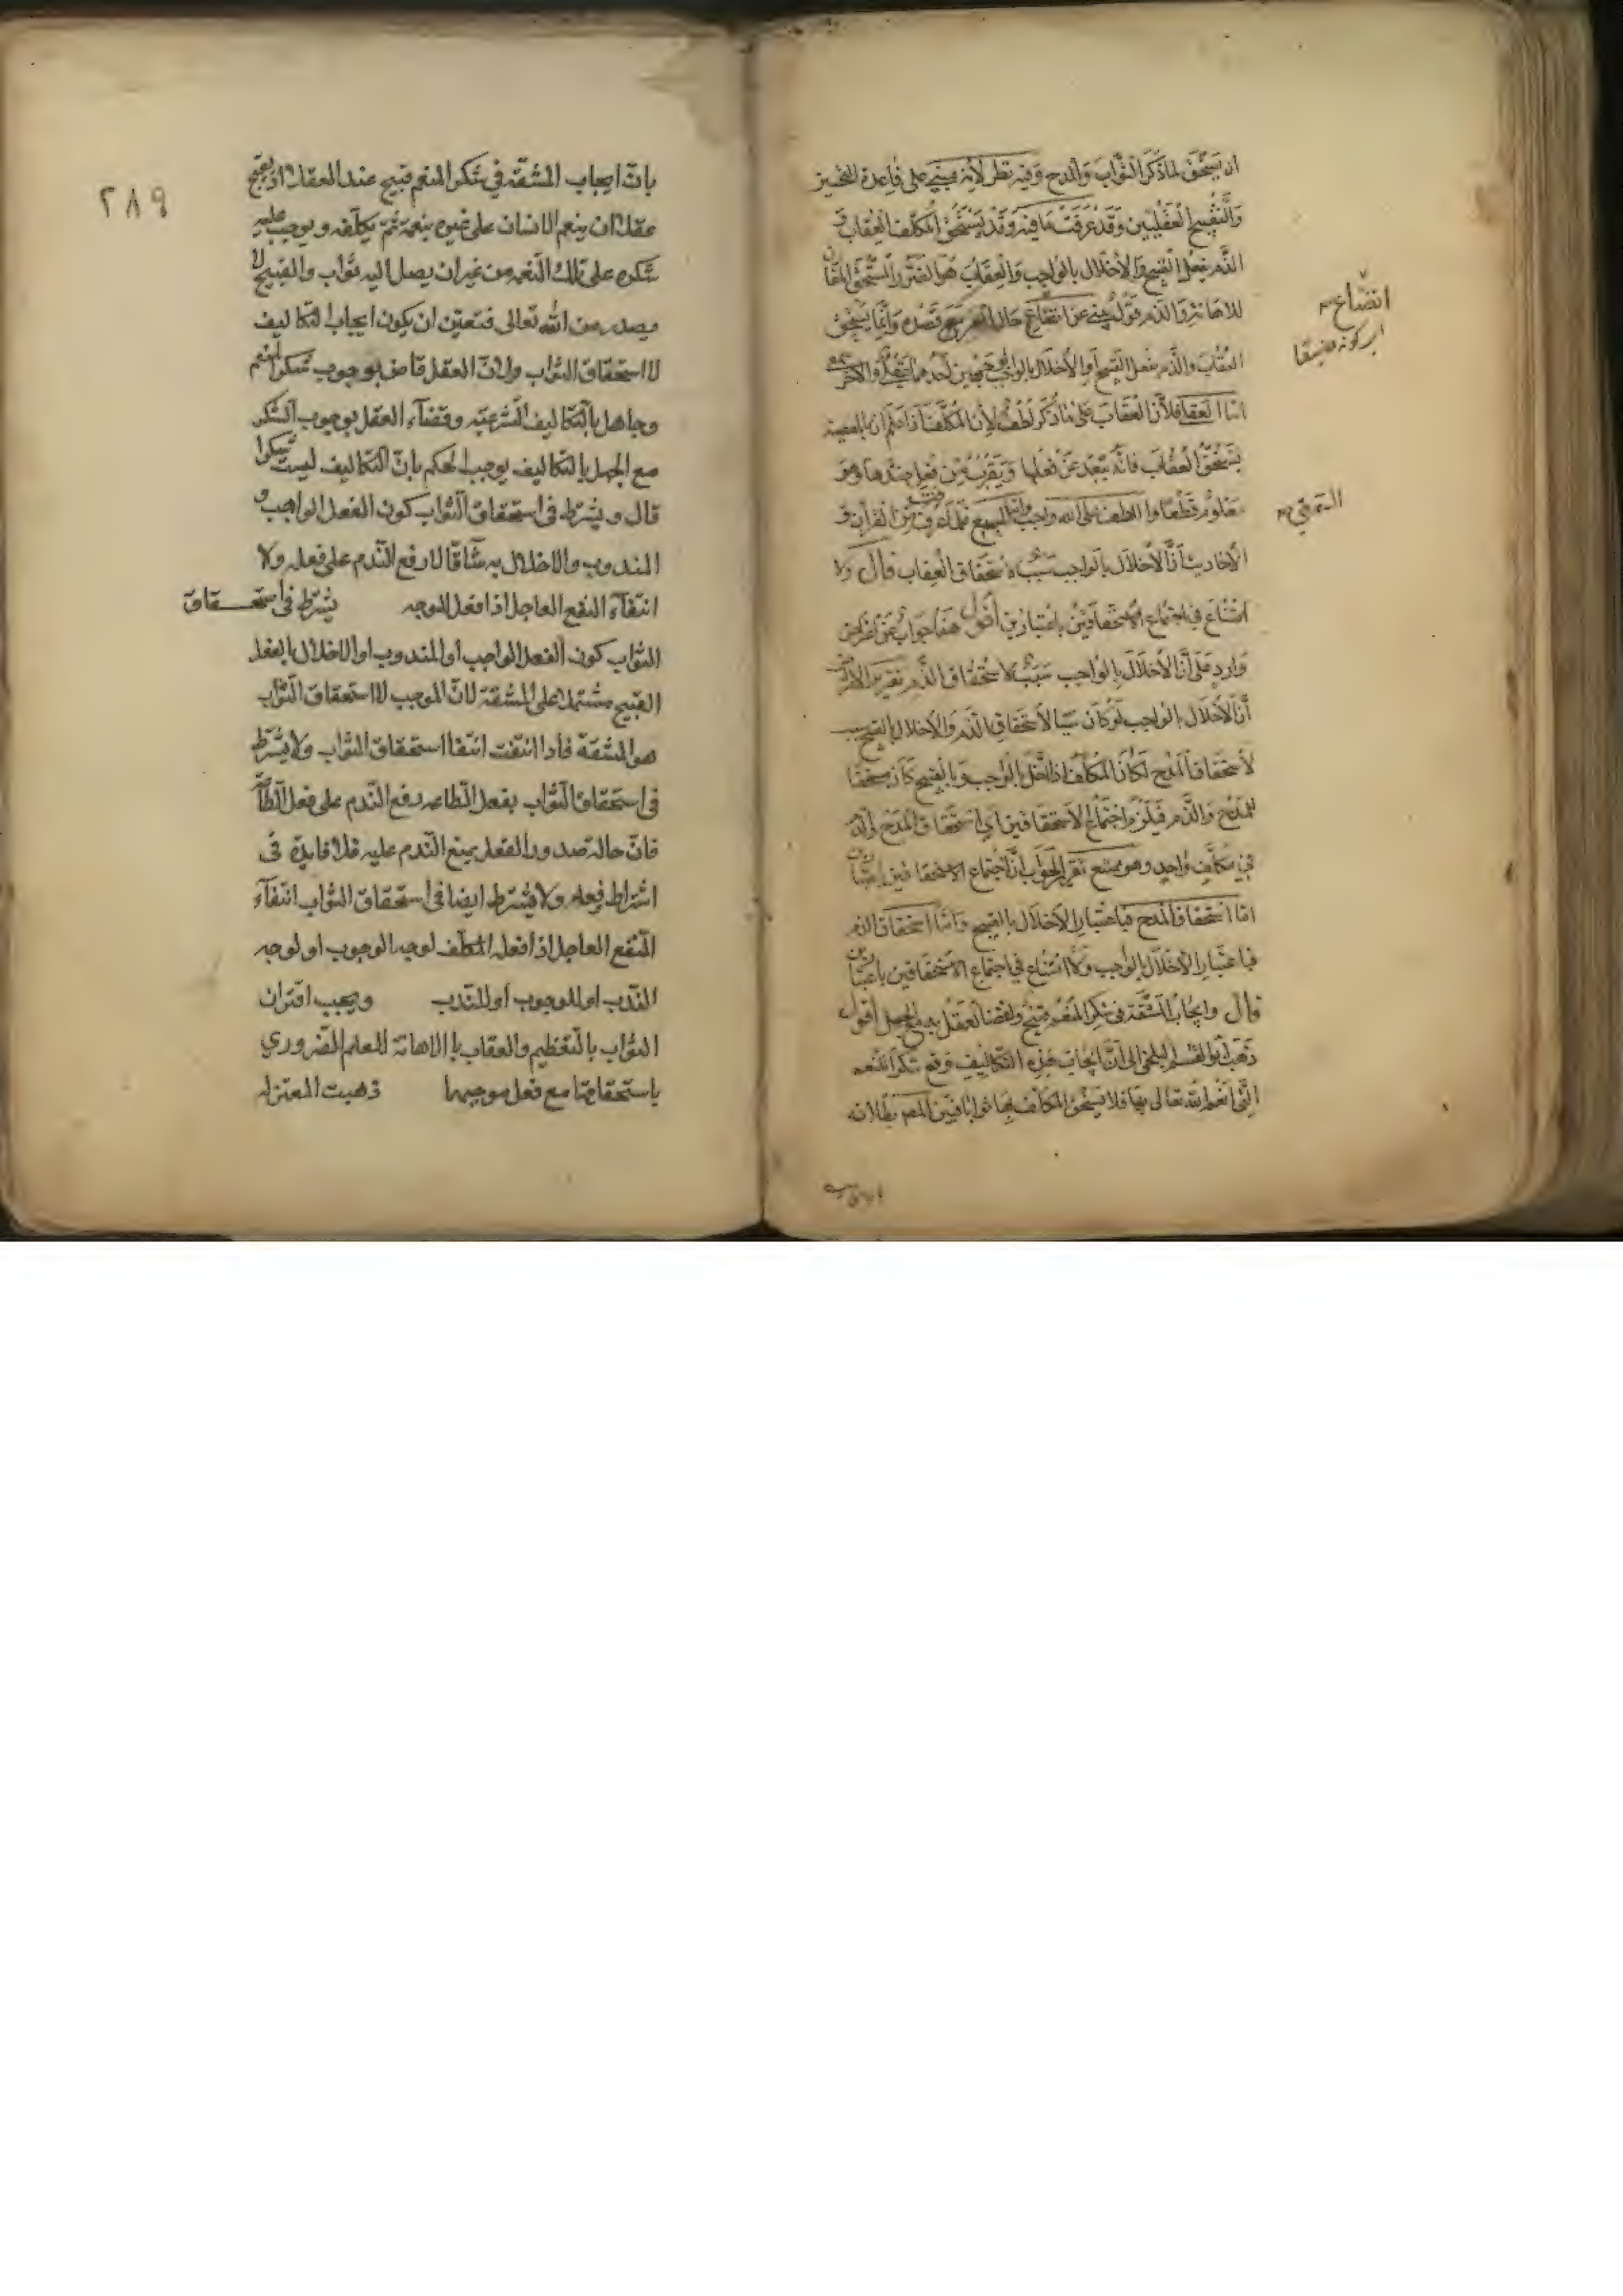 ان يستحق لما ذكر الثواب والمدح وفيه نظر لانه مبني على قاعدة التحسين
والتقبيح العقليين وقد عرفت ما فيه وقد يستحق المكلف العقاب و
الذم بفعل القبيح والاخلال بالواجب والعقاب هو الضرر المستحق المقارن
للاهانة والذم قول ينبئ عن اتضاع حال الغير مع قصده وانما يستحق
العقاب والذم بفعل القبيح او الاخلال بالواجب لوجهين احدهما عقلي والآخر سمعي
اما العقلي فلان العقاب على ما ذكر لطف لان المكلف اذا علم ان بالمعصية
يستحق العقاب فانه يبعد عن فعلها ويقرب من فعل ضدها وهو
معلوم قطعا واللطف على الله واجب واما السمع فلما من القرآن و
الاحاديث ان الاخلال بالواجب سبب لاستحقاق العقاب قال ولا
امتناع في اجتماع الاستحقاقين باعتبارين اقول هذا جواب عن اعتراض
وارد على ان الاخلال بالواجب سبب لاستحقاق الذم تقرير الاعتراض
ان الاخلال بالواجب لو كان سببا لاستحقاق الذم والاخلال بالقبيح سبب
لاستحقاق المدح لكان المكلف اذا اخل بالواجب وبالقبيح كان مستحقا
للمدح والذم فيلزم اجتماع الاستحقاقين اي استحقاق المدح والذم
في مكلف واحد وهو ممتنع تقرير الجواب ان اجتماع الاستحقاقين باعتبارين
اما استحقاق المدح فباعتبار الاخلال بالقبيح واما استحقاق الذم
فباعتبار الاخلال بالواجب ولا امتناع في اجتماع الاستحقاقين باعتبارين
قال وايجاب المشقة في شكر المنعم قبيح ولقضاء العقل به مع الجهل اقول
ذهب ابو القسم البلخي الى ان ايجاب هذه التكاليف وقع شكرا للنعمه
التي انعم الله تعالى بها فلا يستحق المكلف بها ثوابا فبين المص بطلانه
اتضاع
التمرقي
٢٨٩
بانّ ايجاب المشقّة في شكر المنعم قبيح عند العقلاء اذ يقبح
عقلا ان ينعم الانسان على غيره بنعمة ثمّ يكلّفه ويوجب عليه
شكره على تلك النّعمه من غير ان يصل اليه ثواب والقبيح لا
يصدر من الله تعالى فتعيّن ان يكون ايجاب التكاليف
لاستحقاق الثواب ولانّ العقل قاض بوجوب شكر المنعم
وجاهل بالتكاليف الشرعيّه وقضاء العقل بوجوب الشكر
مع الجهل بالتكاليف يوجب الحكم بانّ التكاليف ليست شكرا
قال ويشترط في استحقاق الثواب كون الفعل الواجب و
المندوب والاخلال به شاقّا لا رفع النّدم على فعله ولا
انتفاء النفع العاجل اذا فعل للوجه يشترط في استحقاق
الثواب كون الفعل الواجب أو المندوب او الاخلال بالفعل
القبيح مشتملا على المشقة لانّ الموجب لاستحقاق الثّواب
هو المشقة فاذا انتفت انتفا استحقاق الثواب ولا يشترط
في استحقاق الثواب بفعل الطاعه رفع الندم على فعل الطاعة
فانّ حالة صدور الفعل يمنع النّدم عليه فلا فايدة في
اشتراط رفعه ولا يشترط ايضا في استحقاق الثواب انتفاء
النّفع العاجل اذا فعله المكلّف لوجه الوجوب او لوجه
الندب او للوجوب او للندب ويجب اقتران
الثواب بالتعظيم والعقاب بالاهانة للعلم الضروري
باستحقاقهما مع فعل موجبهما ذهبت المعتزله